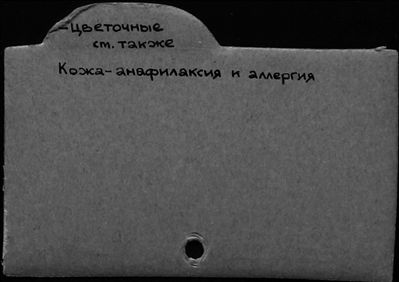 -Цветочные
см. также
Кожа-анафилаксия и аллергия